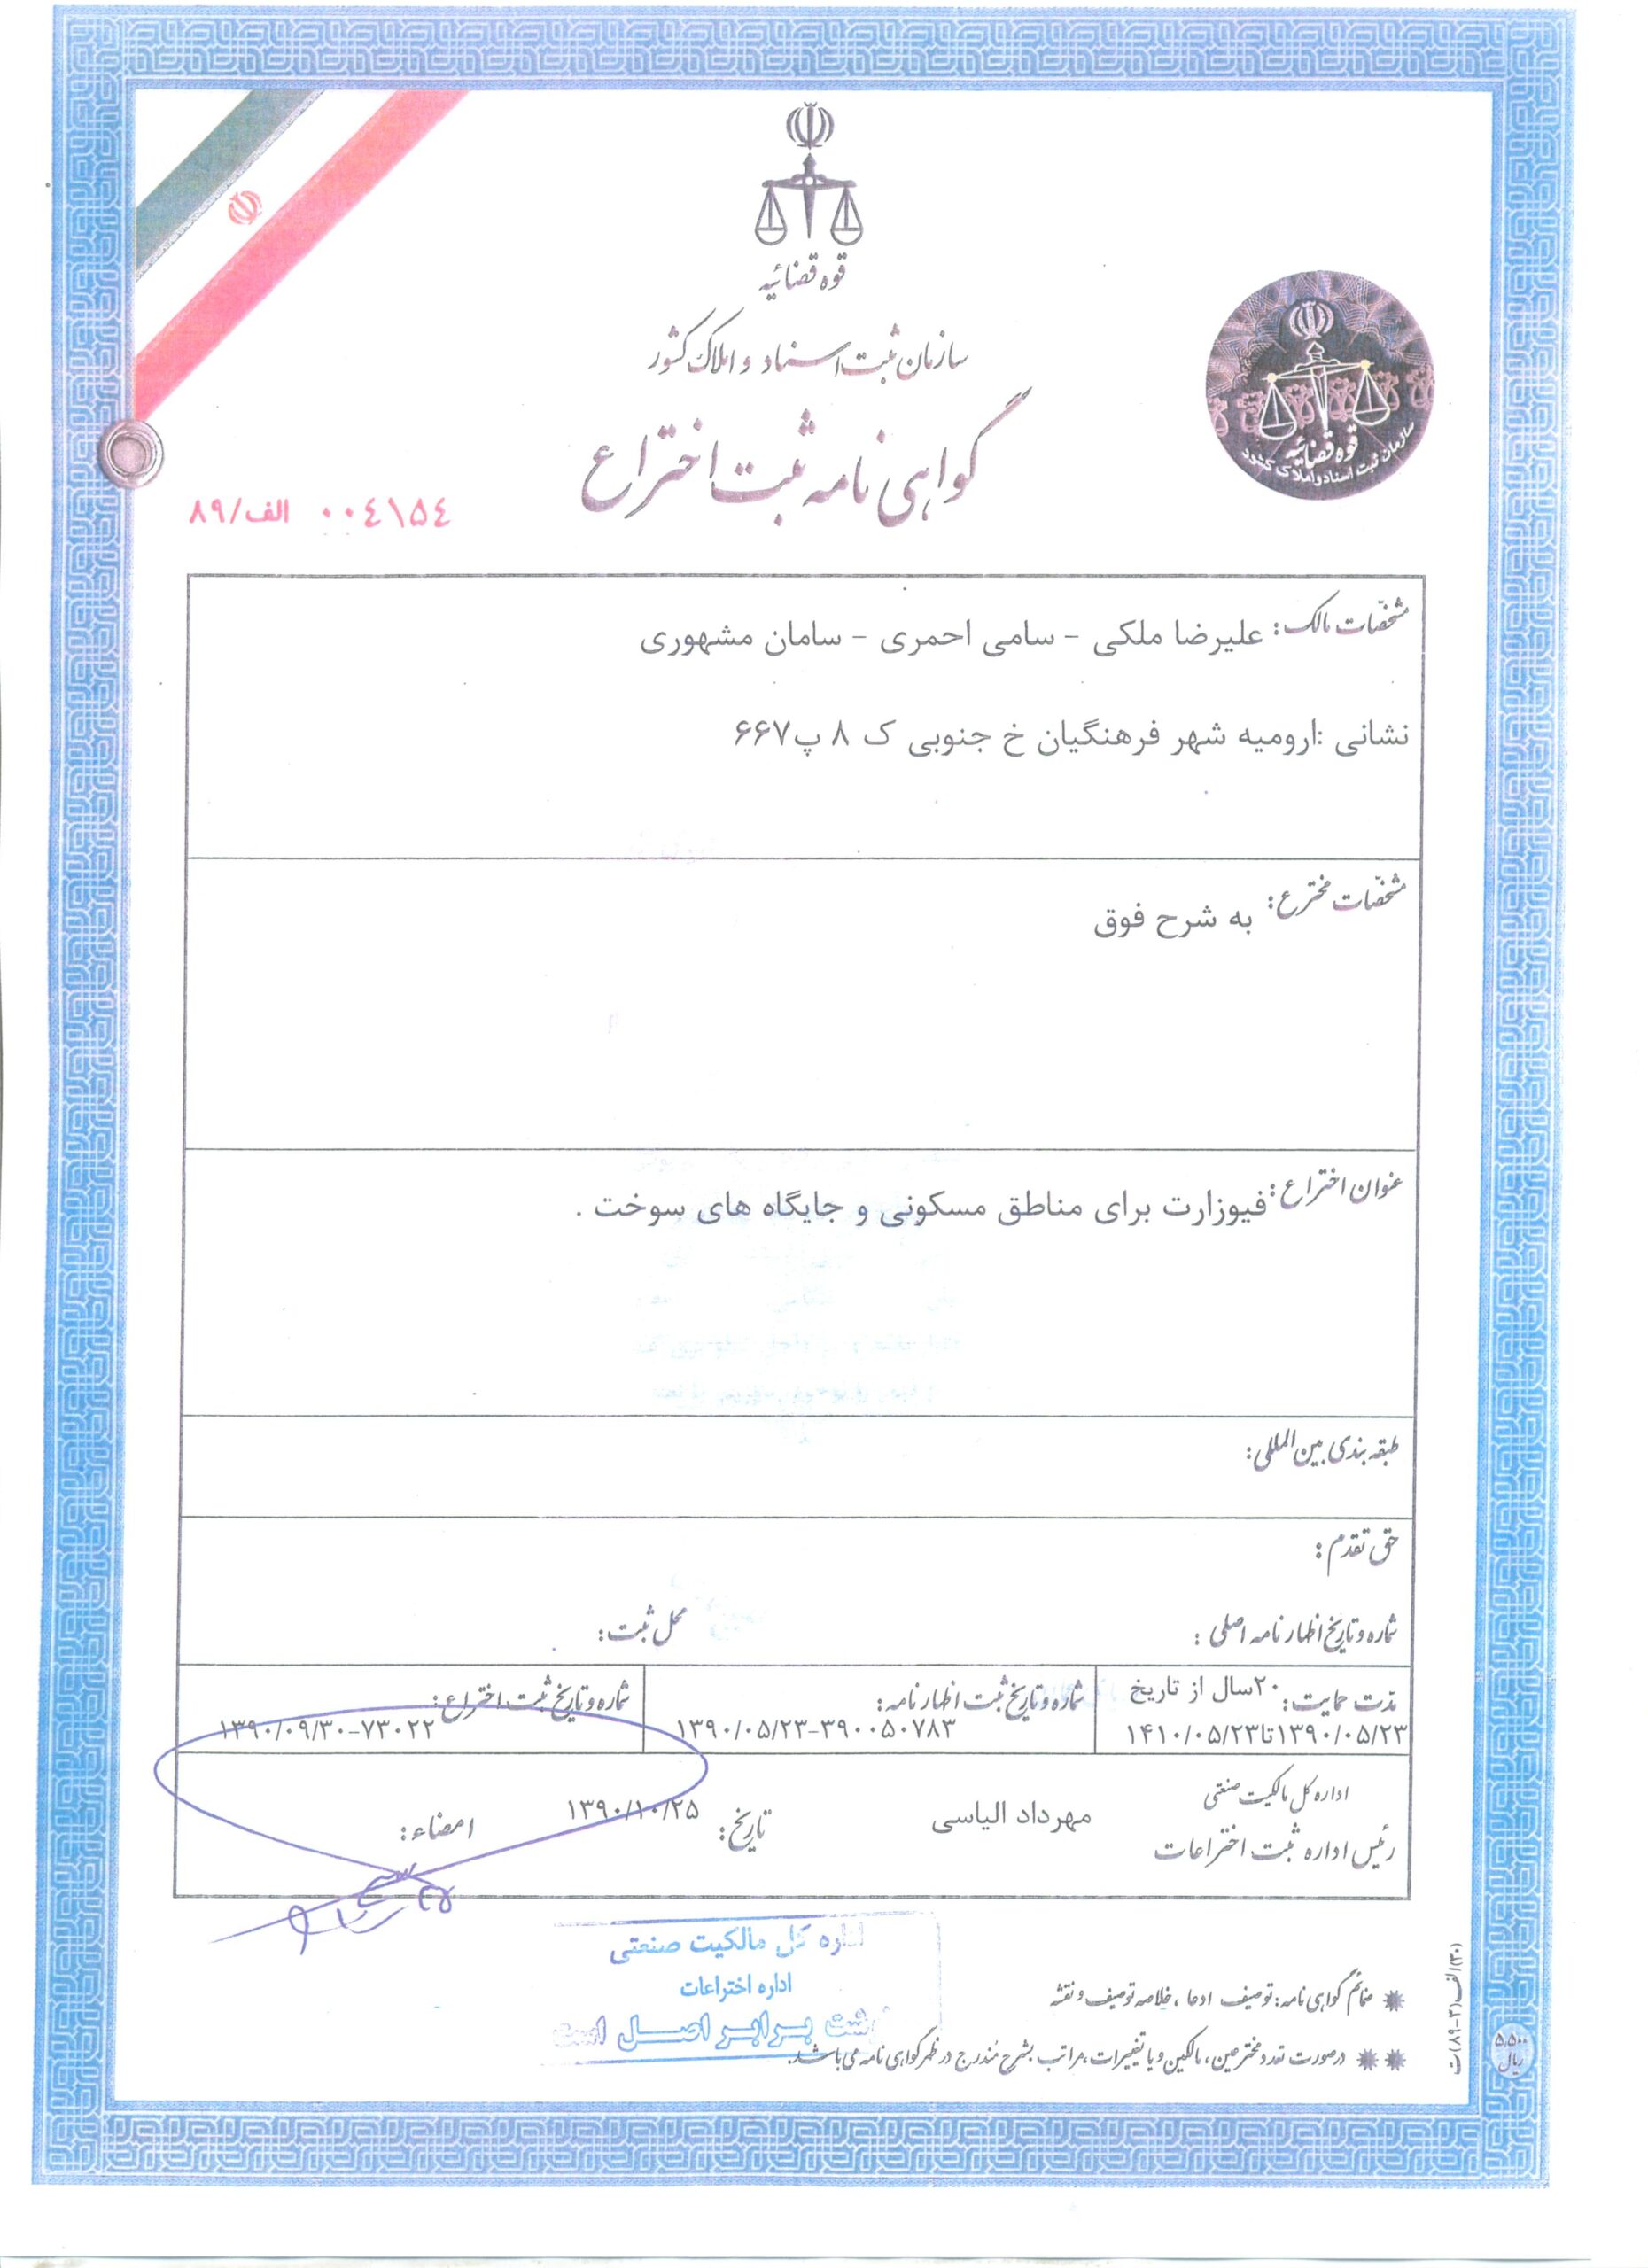 قوه قضائیه
سازمان ثبت اسناد و املاک کشور
گواهی نامه ثبت اختراع
قوه قضائیه
سازمان ثبت اسناد و املاک کشور
۰۰٤۱٥٤ الف/۸۹
مشخّصات مالک: علیرضا ملکی - سامی احمری - سامان مشهوری
نشانی :ارومیه شهر فرهنگیان خ جنوبی ک ۸ پ۶۶۷
مشخّصات مخترع: به شرح فوق
عنوان اختراع: فیوزارت برای مناطق مسکونی و جایگاه های سوخت .
طبقه بندی بین المللی:
حق تقدم:
شماره و تاریخ اظهارنامه اصلی: محل ثبت:
مدّت حمایت: ۲۰سال از تاریخ
۱۳۹۰/۰۵/۲۳تا۱۴۱۰/۰۵/۲۳
شماره و تاریخ ثبت اظهارنامه:
۱۳۹۰/۰۵/۲۳-۳۹۰۰۵۰۷۸۳
شماره و تاریخ ثبت اختراع:
۱۳۹۰/۰۹/۳۰-۷۳۰۲۲
اداره کل مالکیت صنعتی
رئیس اداره ثبت اختراعات
مهرداد الیاسی
تاریخ: ۱۳۹۰/۱۰/۲۵
امضاء:
اداره کل مالکیت صنعتی
اداره اختراعات
برابر اصل است
ضمائم گواهی نامه: توصیف ادعا ، خلاصه توصیف و نقشه
درصورت تعدد مخترعین، مالکین و یا تغییرات، مراتب بشرح مُندرج در ظهر گواهی نامه می باشد.
۵،۵۰۰
ریال